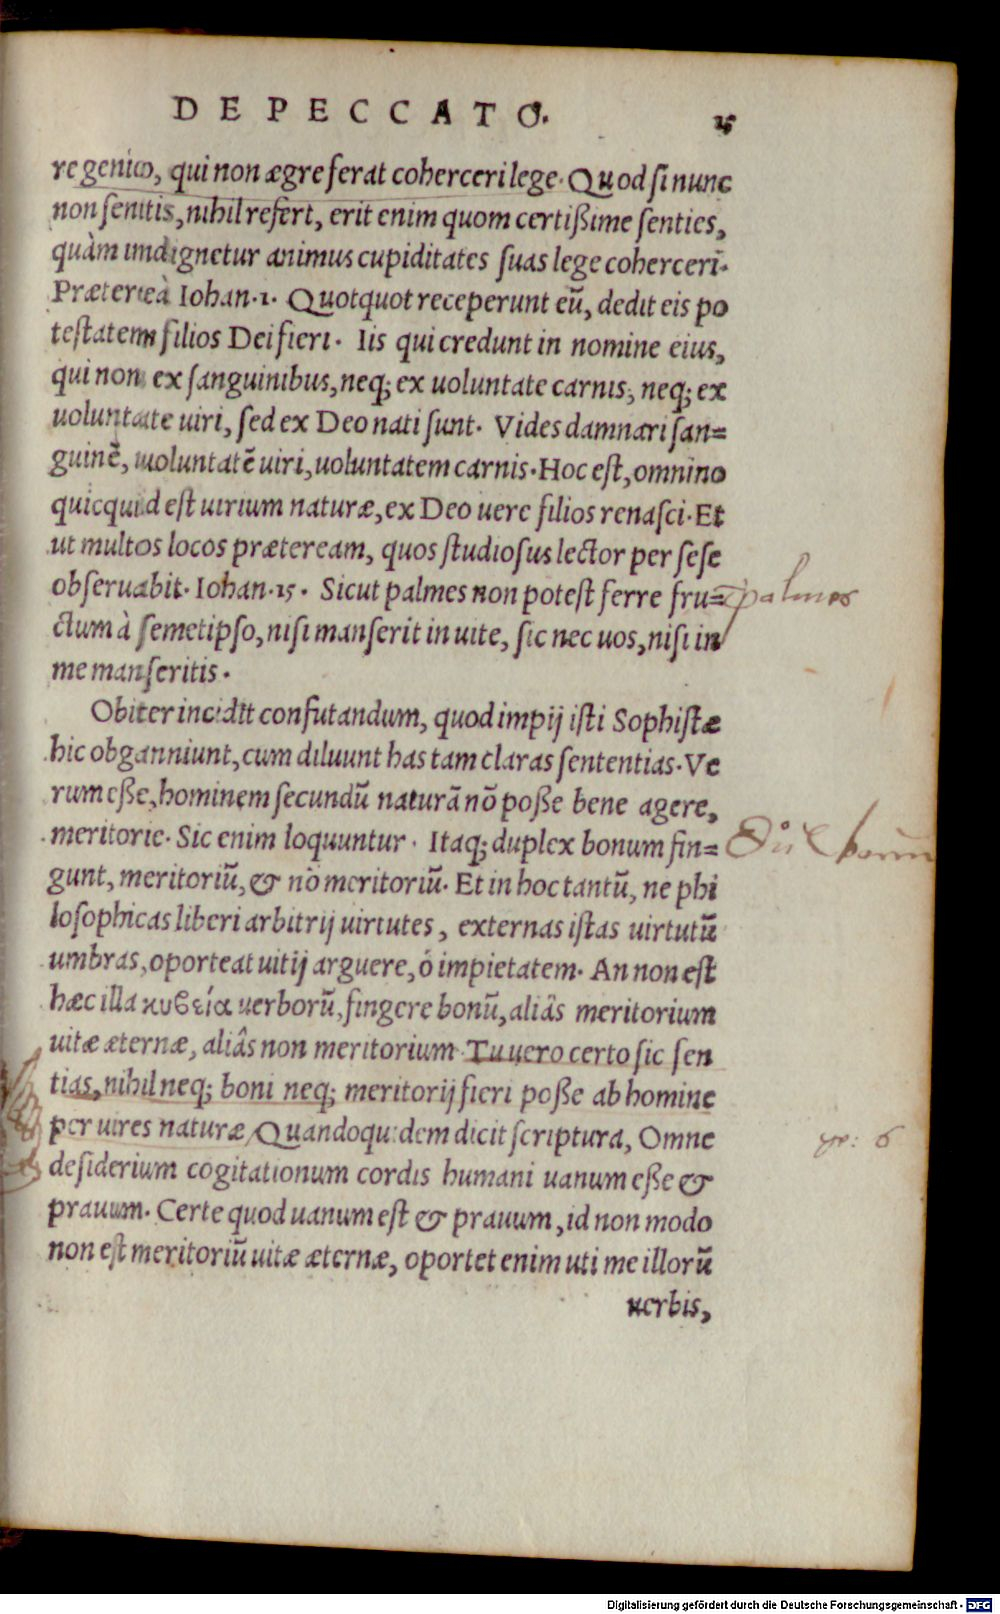 DE PECCATO. 25
re genio, qui non ægre ferat coherceri lege. Quod si nunc
non sentitis, nihil refert, erit enim quom certißime senties,
quàm indignetur animus cupiditates suas lege coherceri.
Prætereà Iohan. 1. Quotquot receperunt eũ, dedit eis po
testatem filios Dei fieri. Iis qui credunt in nomine eius,
qui non ex sanguinibus, neq; ex uoluntate carnis, neq; ex
uoluntate uiri, sed ex Deo nati sunt. Vides damnari san=
guinẽ, uoluntatẽ uiri, uoluntatem carnis. Hoc est, omnino
quicquid est uirium naturæ, ex Deo uere filios renasci. Et
ut multos locos præteream, quos studiosus lector per sese
obseruabit. Iohan. 15. Sicut palmes non potest ferre fru=
palmes
ctum à semetipso, nisi manserit in uite, sic nec uos, nisi in
me manseritis.
Obiter incidit confutandum, quod impij isti Sophistæ
hic obganniunt, cum diluunt has tam claras sententias. Ve
rum eße, hominem secundũ naturã nõ poße bene agere,
meritorie. Sic enim loquuntur. Itaq; duplex bonum fin=
gunt, meritoriũ, & nõ meritoriũ. Et in hoc tantũ, ne phi
losophicas liberi arbitrij uirtutes, externas istas uirtutũ
umbras, oporteat uitij arguere, ó impietatem. An non est
hæc illa κυβεία uerborũ, fingere bonũ, aliâs meritorium
uitæ æternæ, aliâs non meritorium. Tu uero certo sic sen
tias, nihil neq; boni neq; meritorij fieri poße ab homine
per uires naturæ, Quandoquidem dicit scriptura, Omne
desiderium cogitationum cordis humani uanum eße &
prauum. Certe quod uanum est & prauum, id non modo
non est meritoriũ uitæ æternæ, oportet enim uti me illorũ
uerbis,
Digitalisierung gefördert durch die Deutsche Forschungsgemeinschaft - DFG